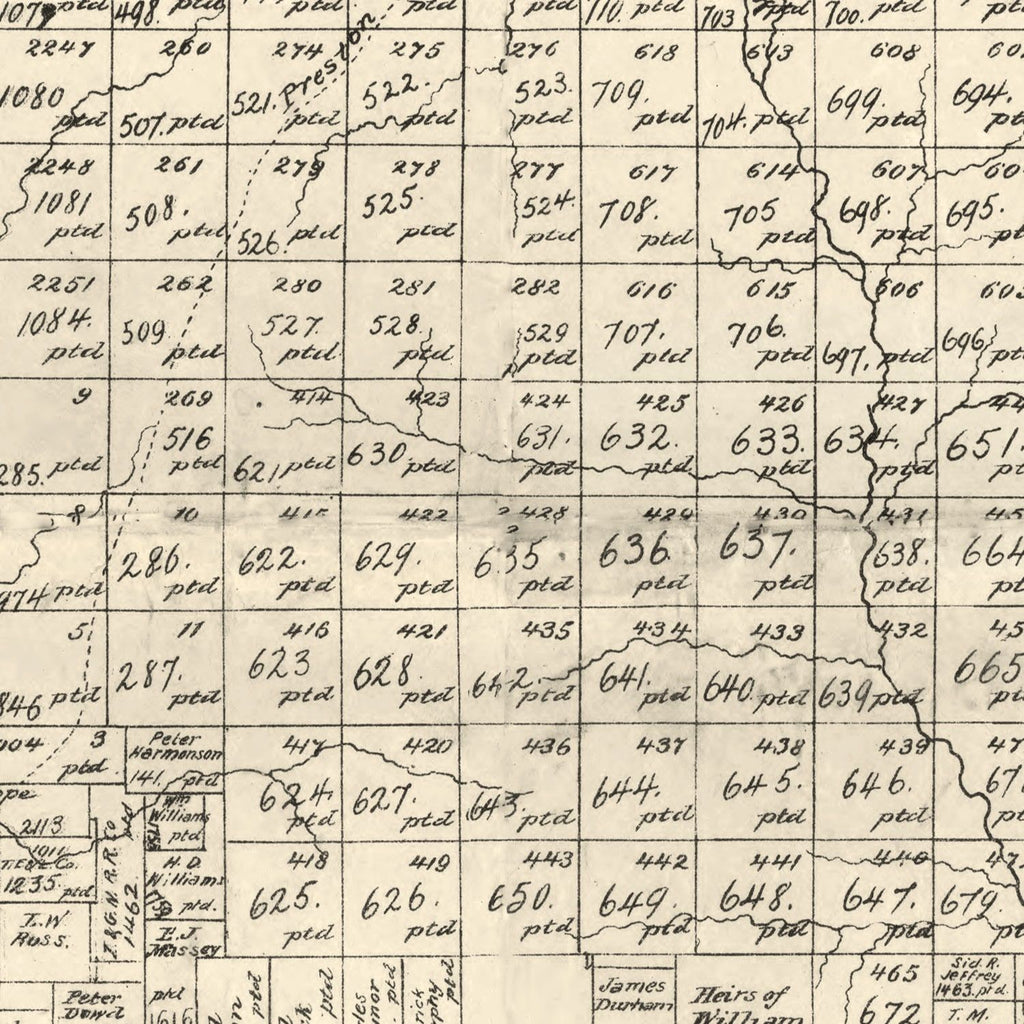 107 ptd 498. ptd 110. ptd 703 ptd 700. ptd
2247 260 274 275 276 618 613 608
Preston
1080 ptd 507. ptd 521. ptd 522. ptd 523. ptd 709. 704. ptd 699. ptd 694. ptd
2248 261 279 278 277 617 614 607
1081 ptd 508. ptd 526. ptd 525. ptd 524. ptd 708. ptd 705 ptd 698. ptd 695. ptd
2251 262 280 281 282 616 615 606 603
1084. ptd 509. ptd 527. ptd 528. ptd 529 ptd 707. ptd 706. ptd 697. ptd 696 ptd
9 269 414 423 424 425 426 427
285. ptd 516 ptd 621 ptd 630. ptd 631. ptd 632. ptd 633. ptd 634. ptd 651. ptd
8 10 415 422 428 429 430 431
974 ptd 286. ptd 622. ptd 629. ptd 635 ptd 636. ptd 637. ptd 638. ptd 664 ptd
5 11 416 421 435 434 433 432
846 ptd 287. ptd 623 ptd 628. ptd 642. ptd 641. ptd 640. ptd 639 ptd 665 ptd
3 ptd
Peter
Harmonson
141. ptd
417 420 436 437 438 439
624. ptd 627. ptd 643. ptd 644. ptd 645. ptd 646. ptd
Wm
Williams
ptd
2113
1235. ptd
I. & G. N. R. R. Co
1462 ptd
H. D.
Williams
ptd.
418 419 443 442 441 440
625. ptd 626. ptd 650. ptd 649. ptd 648. ptd 647. ptd 679. ptd
Ross.
E. J.
Massey
Peter
Dowd
ptd
1616
ptd
ptd
ptd
ptd
James
Durham
Heirs of
William
465
672
Sid. R.
Jeffrey
1463. ptd.
T. M.